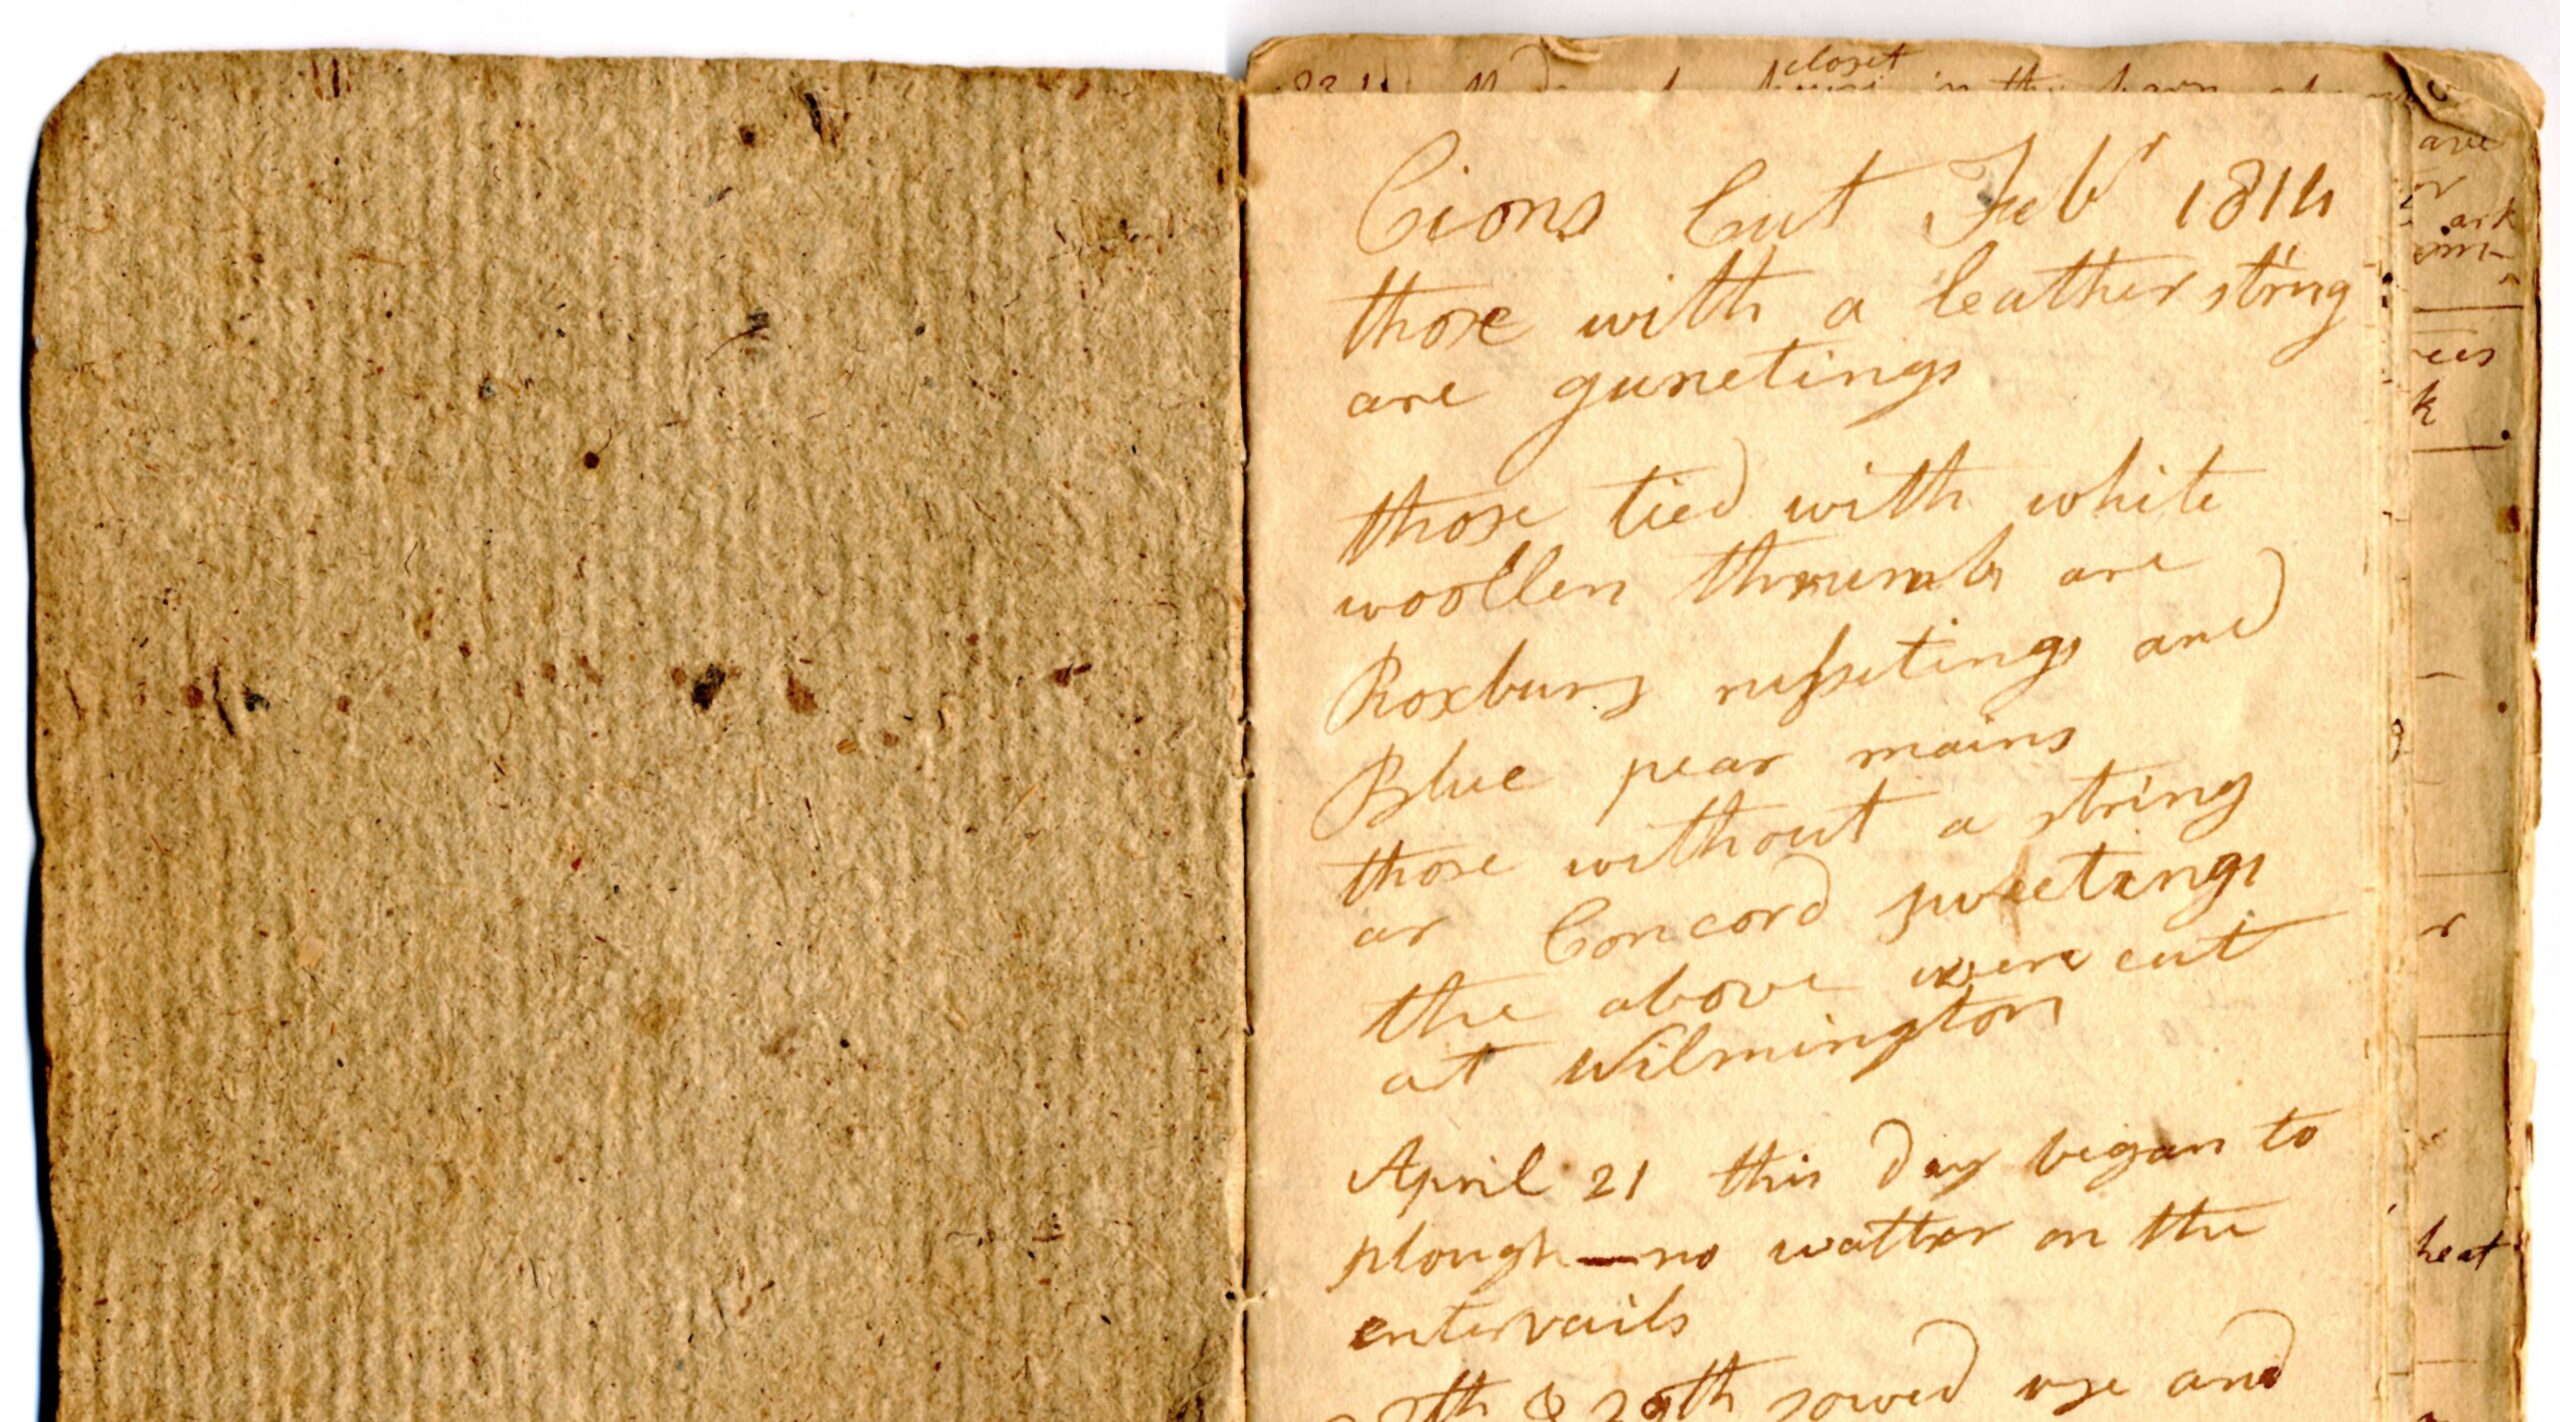 closet
in the barn
Cions Cut Feb^r 1814
those with a leather string
are gunetings
those tied with white
woollen thrumbs are
Roxbury russetings and
Blue pear mains
those without a string
ar Concord sweetings
the above were cut
at Wilmington
April 21 this day began to
plough — no watter on the
entervails
& 29th sowed rye and
are
ark
k
r
heat